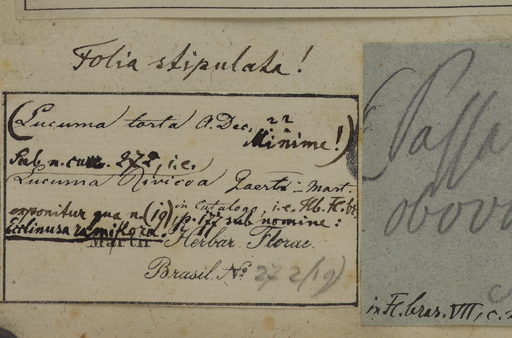 Folia stipulata!
(Lucuma torta A. Dec. 22
Minime!)
Sub n. cum. 272, i.e.
Lucuma Rivicoa Gaertn. Mart.
in Catalogo, i.e. Hb. Fl. br.
exponitur qua n. (19), p. 177 sub nomine:
Ecclinusa ramiflora.
Martii Herbar. Florae
Brasil. No 272 (19)
Passa
obova
in Fl. bras. VII, c.